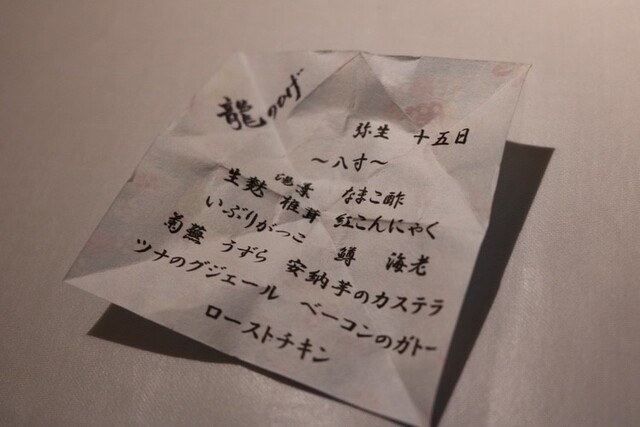 龍のひげ
弥生 十五日
～八寸～
生麩 椎茸 なまこ酢
いぶりがっこ 紅こんにゃく
菊蕪 うずら 鱒 海老
安納芋のカステラ
ツナのグジェール ベーコンのガトー
ローストチキン